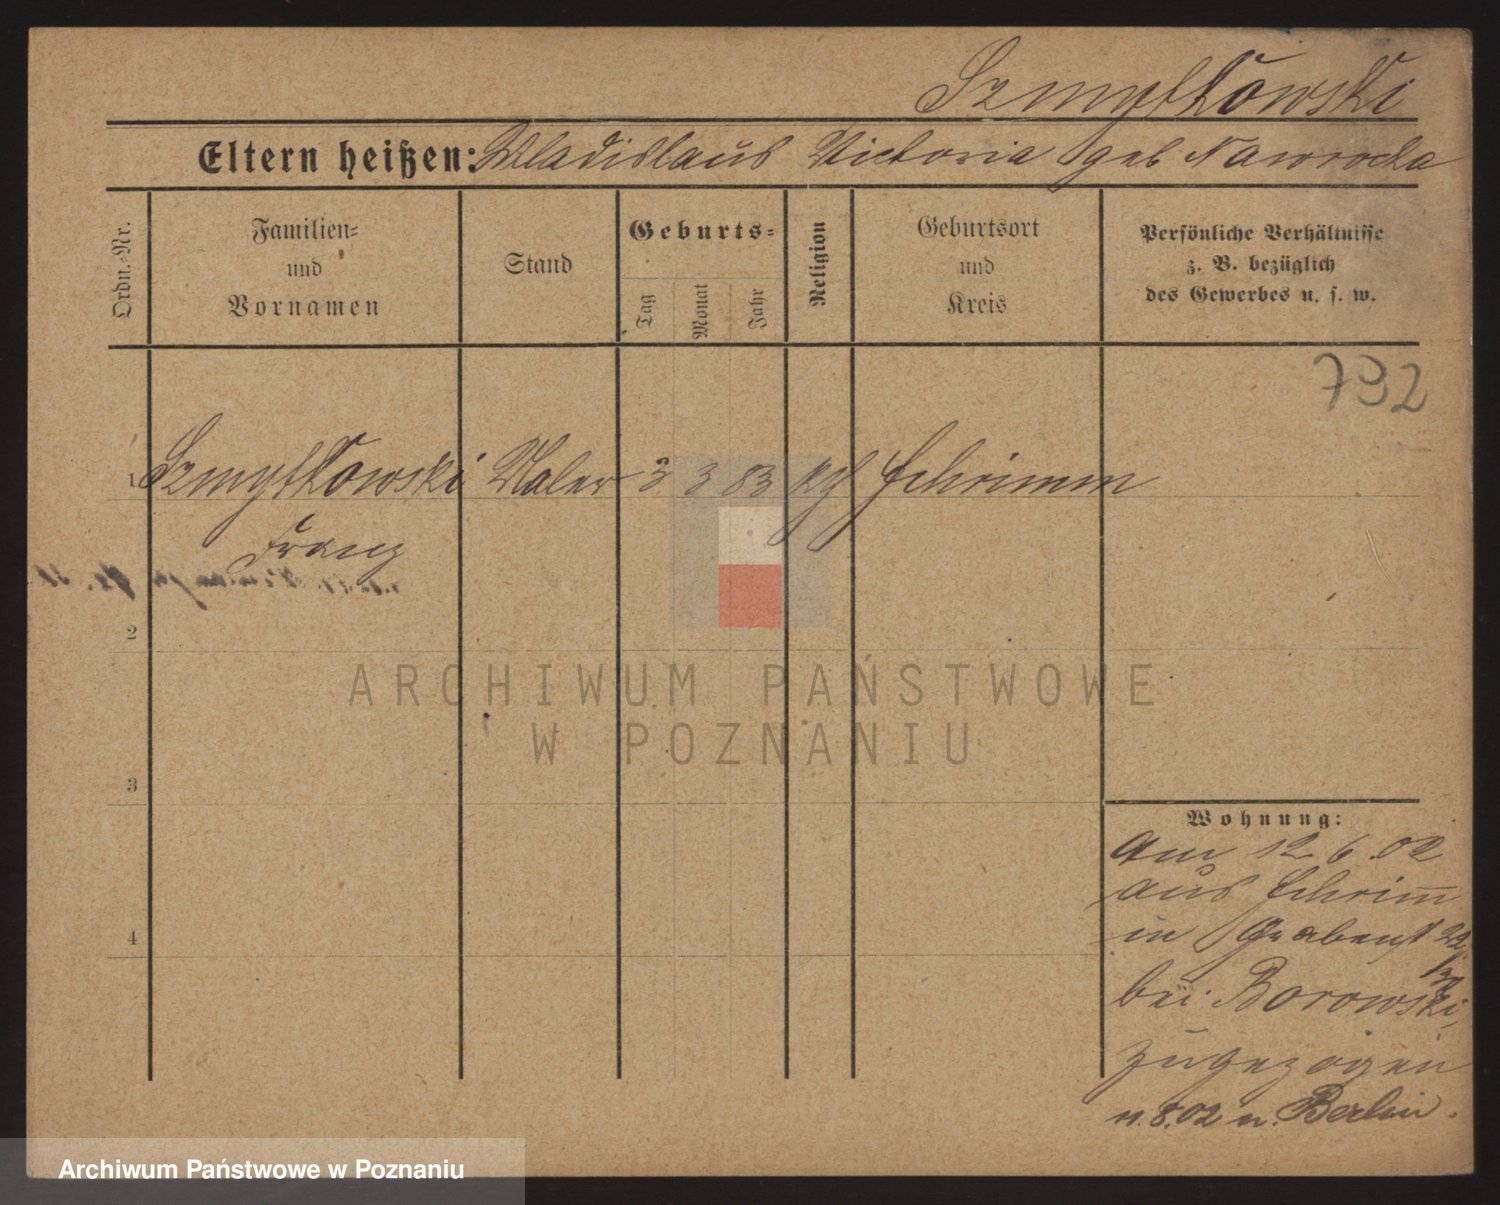 Szmytkowski
Eltern heißen: Wladislaus Victoria geb Nawrocka
Ordn.-Nr.
Familien-
und
Vornamen
Stand
Geburts-
Tag
Monat
Jahr
Religion
Geburtsort
und
Kreis
Persönliche Verhältnisse
z. B. bezüglich
des Gewerbes u. s. w.
732
1 Szmytkowski Maler 3 3 83 kth Schrimm
Franz
2
3
4
Wohnung:
Am 12 6. 02
aus Schrim̄
in Grabenst 22
bei Borowski,
zugezogen
11.8.02 n. Berlin.
ARCHIWUM PAŃSTWOWE
W POZNANIU
Archiwum Państwowe w Poznaniu